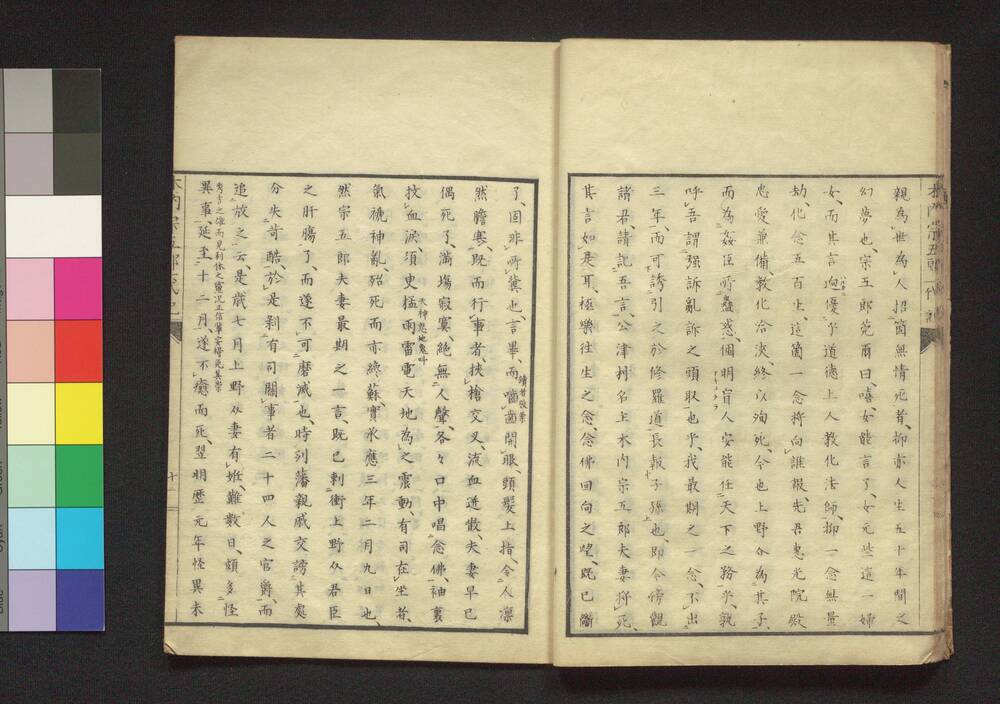 親為世為人招箇無情死者、抑亦人生五十年間之
幻夢也、宗五郎莞爾曰、嘻、女能言了、女元些這一婦
女、而其言迥優乎道德上人教化法師、抑一念無量
劫、化念五百生、這箇一念將向誰報、先君惠光院殿
忠愛兼備、教化洽浹、終以殉死、今也上野介為其子、
而為姦臣所蠱惑、個明盲人安能任天下之務乎、孰
呼吾謂強訴亂訴之頭取也乎、我最期之一念、不出
三年、而可誘引之於修羅道、長報子孫也、即今傍觀
諸君、請記吾言、公津村名主木內宗五郎夫妻將死、
其言如是耳、極樂往生之念、念佛回向之望、既已斷
了、固非所冀也、言畢、而嚙齒開眼、頭髮上指、令人凜
然膽寒、既而行事者、挾槍交叉、流血迸散、夫妻早已
偶死了、滿場寂寞、絕無人聲、各々口中唱念佛、袖裏
抆血淚、須史猛雨雷電、天地為之震動、有司在坐者、
氣褫神亂、殆死而亦終蘇、實承應三年二月九日也、
然宗五郎夫妻最期之一言、既已刺衝上野介君臣
之肝腸了、而遂不可磨滅也、時列藩親戚交謗其處
分失苛酷、於是剝有司關事者二十四人之官爵、而
追放之云、是歲七月上野介妻有妊、難數日、頗多怪
異事、延至十二月、遂不癒而死、翌明歷元年怪異未
木內宗五郎一代記
十二